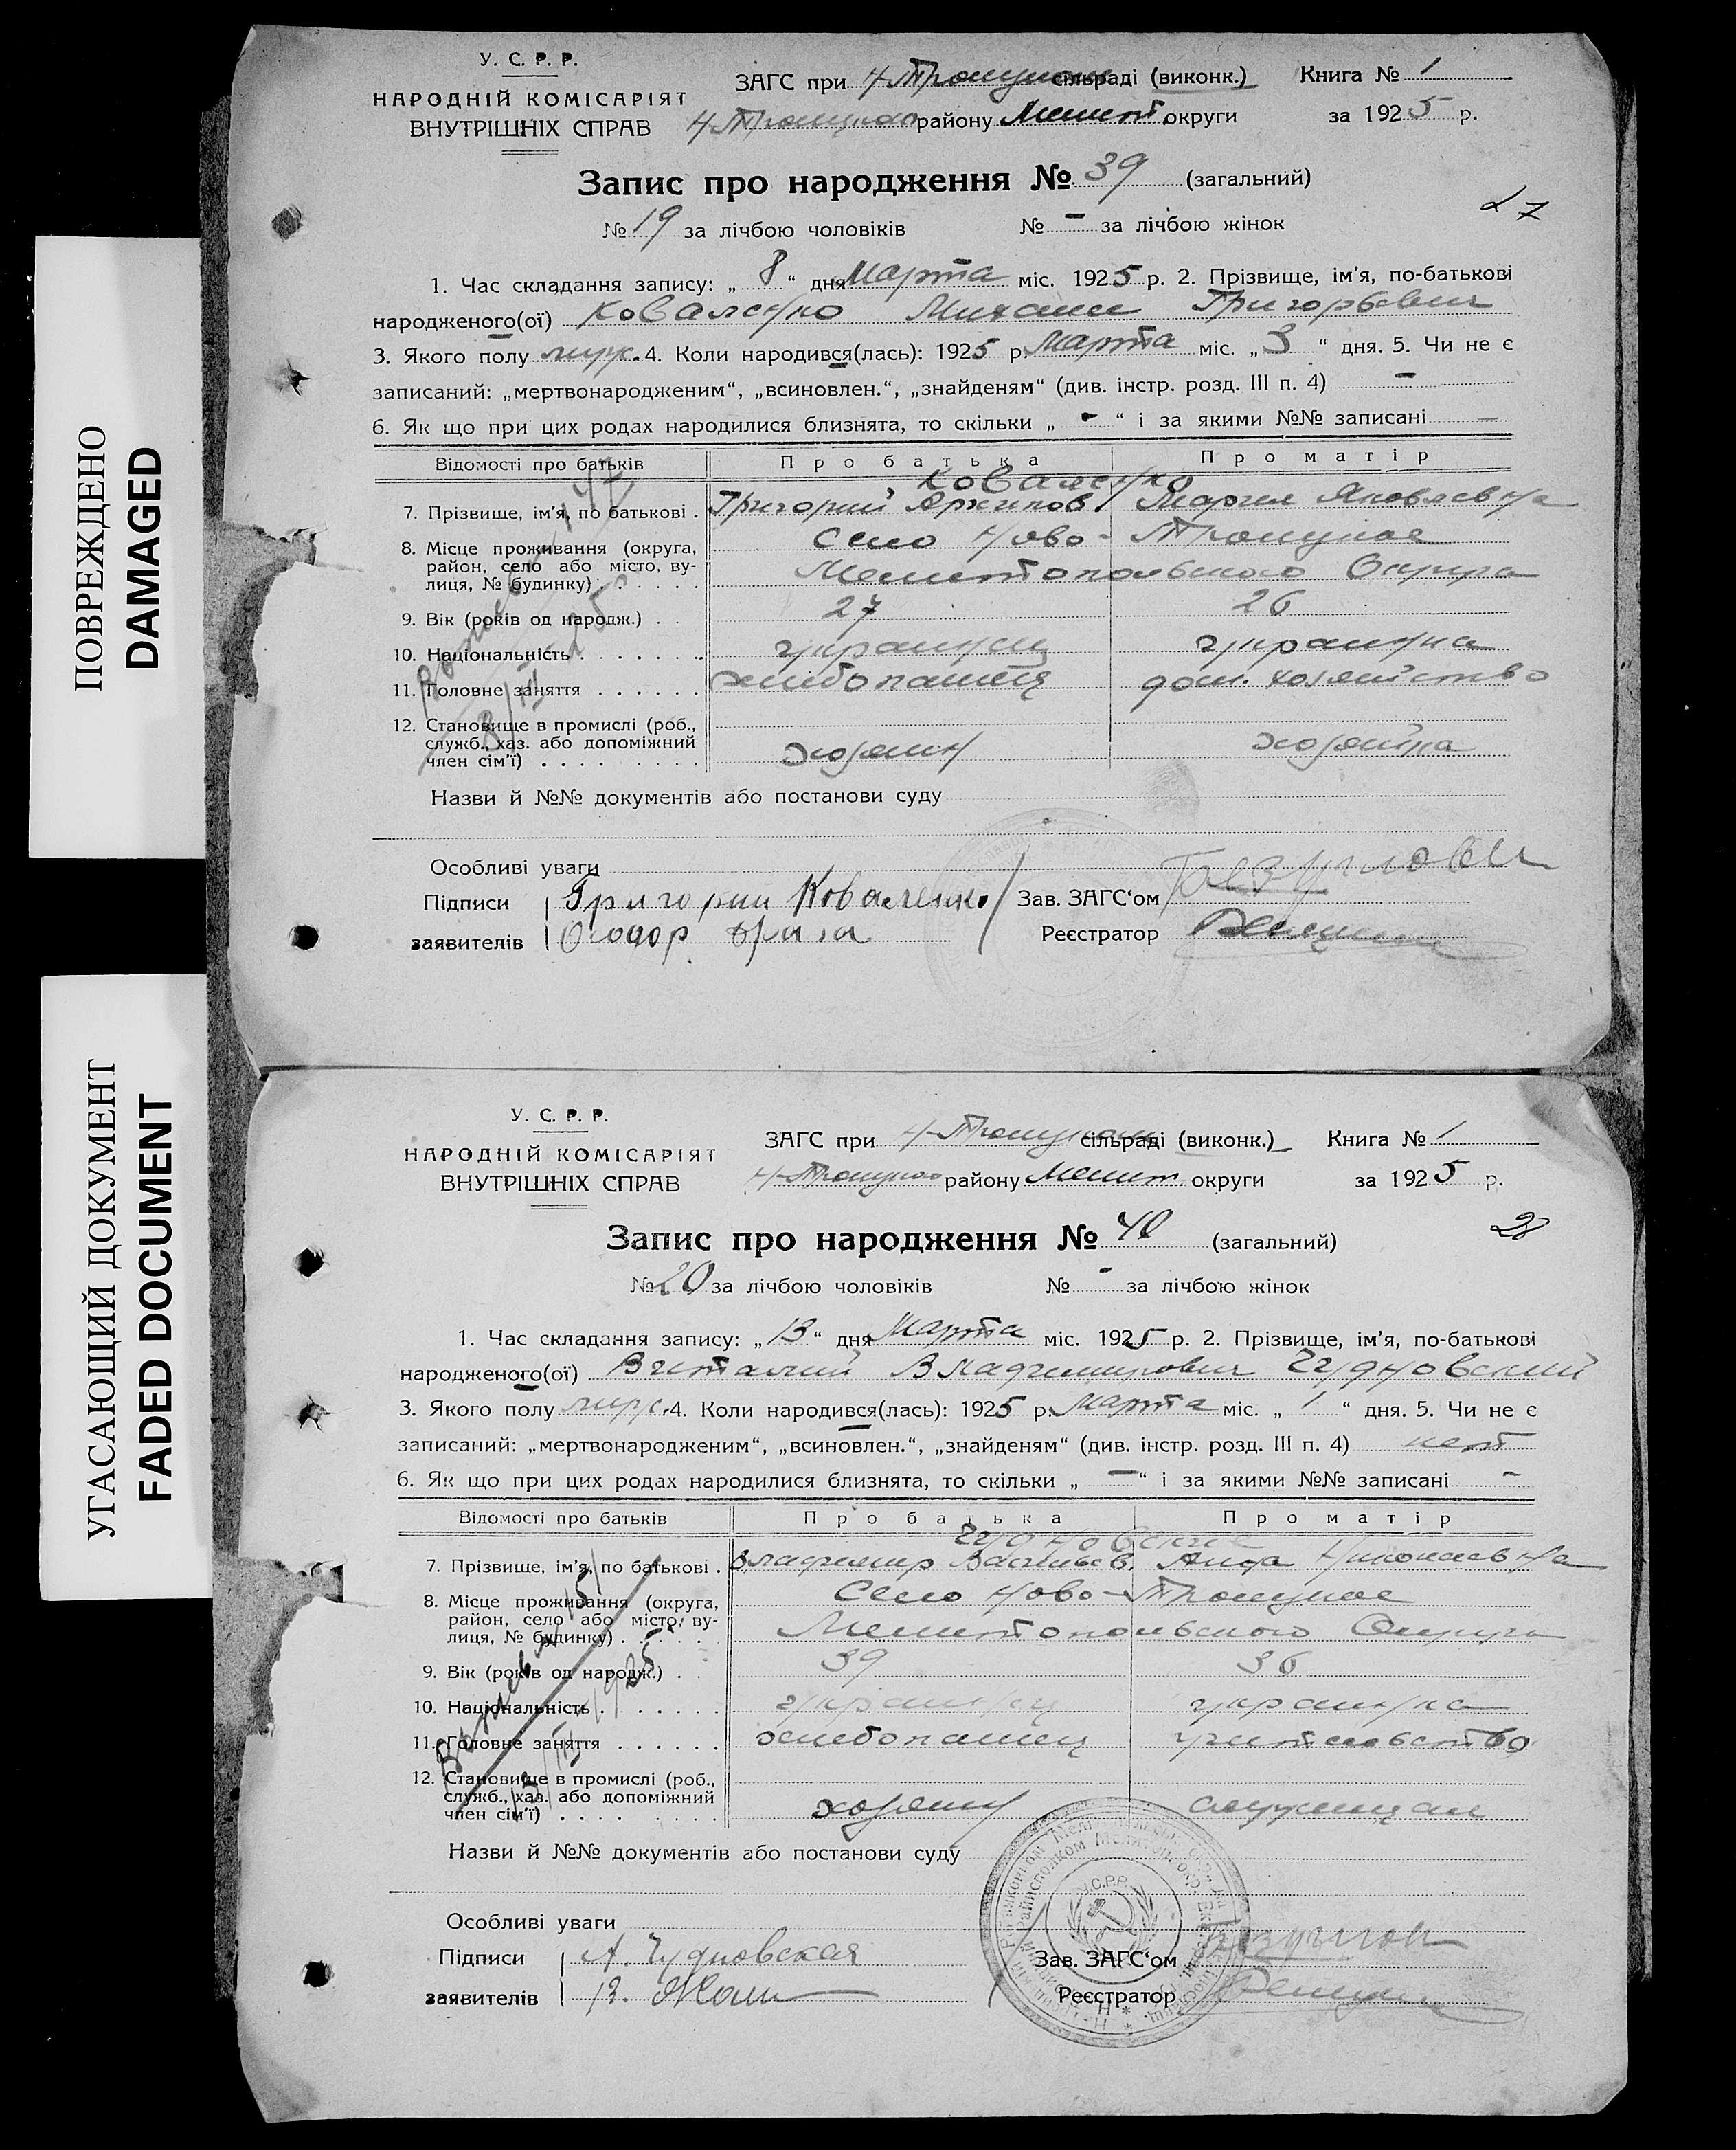 ПОВРЕЖДЕНО
DAMAGED
УГАСАЮЩИЙ ДОКУМЕНТ
FADED DOCUMENT
У. С. Р. Р.
НАРОДНІЙ КОМІСАРІЯТ
ВНУТРІШНІХ СПРАВ
ЗАГС при Н-Троицком сільраді (виконк.) Книга № 1
Н-Троицкого району Мелит. округи за 1925 р.
Запис про народження № 39 (загальний)
27
№ 19 за лічбою чоловіків № - за лічбою жінок
1. Час складання запису: „ 8 “ дня Марта міс. 1925 р. 2. Прізвище, ім'я, по-батькові
народженого(ої) Коваленко Михаил Григорьевич
3. Якого полу муж. 4. Коли народився(лась): 1925 р. Марта міс. „ 3 “ дня. 5. Чи не є
записаний: „мертвонародженим“, „всиновлен.“, „знайденям“ (див. інстр. розд. III п. 4) -
6. Як що при цих родах народилися близнята, то скільки „ - “ і за якими №№ записані -
Відомості про батьків Про батька Про матір
Коваленко
7. Прізвище, ім'я, по батькові . Григорий Архипов. Мария Яковлевна
8. Місце проживання (округа, район, село або місто, вулиця, № будинку) . . . . . Село Ново-Троицкое
Мелитопольского Округа
9. Вік (років од народж.) . . 27 26
10. Національність . . . . . . . украинец украинка
11. Головне заняття . . . . . . хлебопашец дом. хозяйство
12. Становище в промислі (роб., служб., хаз. або допоміжний член сім'ї) . . . . . . . . хозяин хозяйка
Назви й №№ документів або постанови суду
Особливі уваги
Підписи Григорий Коваленко Зав. ЗАГС'ом
заявителів Реєстратор
У. С. Р. Р.
НАРОДНІЙ КОМІСАРІЯТ
ВНУТРІШНІХ СПРАВ
ЗАГС при Н-Троицком сільраді (виконк.) Книга № 1
Н-Троицкого району Мелит. округи за 1925 р.
Запис про народження № 40 (загальний)
28
№ 20 за лічбою чоловіків № - за лічбою жінок
1. Час складання запису: „ 13 “ дня Марта міс. 1925 р. 2. Прізвище, ім'я, по-батькові
народженого(ої) Виталий Владимирович Чудновский
3. Якого полу муж. 4. Коли народився(лась): 1925 р. Марта міс. „ 1 “ дня. 5. Чи не є
записаний: „мертвонародженим“, „всиновлен.“, „знайденям“ (див. інстр. розд. III п. 4) нет
6. Як що при цих родах народилися близнята, то скільки „ - “ і за якими №№ записані -
Відомості про батьків Про батька Про матір
7. Прізвище, ім'я, по батькові . Владимир Васильев. Аида Николаевна
8. Місце проживання (округа, район, село або місто, вулиця, № будинку) . . . . . Село Ново-Троицкое
Мелитопольского Округа
9. Вік (років од народж.) . . 39 36
10. Національність . . . . . . . украинец украинка
11. Головне заняття . . . . . . хлебопашец учительство
12. Становище в промислі (роб., служб., хаз. або допоміжний член сім'ї) . . . . . . . . хозяин служащая
Назви й №№ документів або постанови суду
Особливі уваги
Підписи А. Чудновская Зав. ЗАГС'ом
заявителів Реєстратор
У.С.Р.Р.